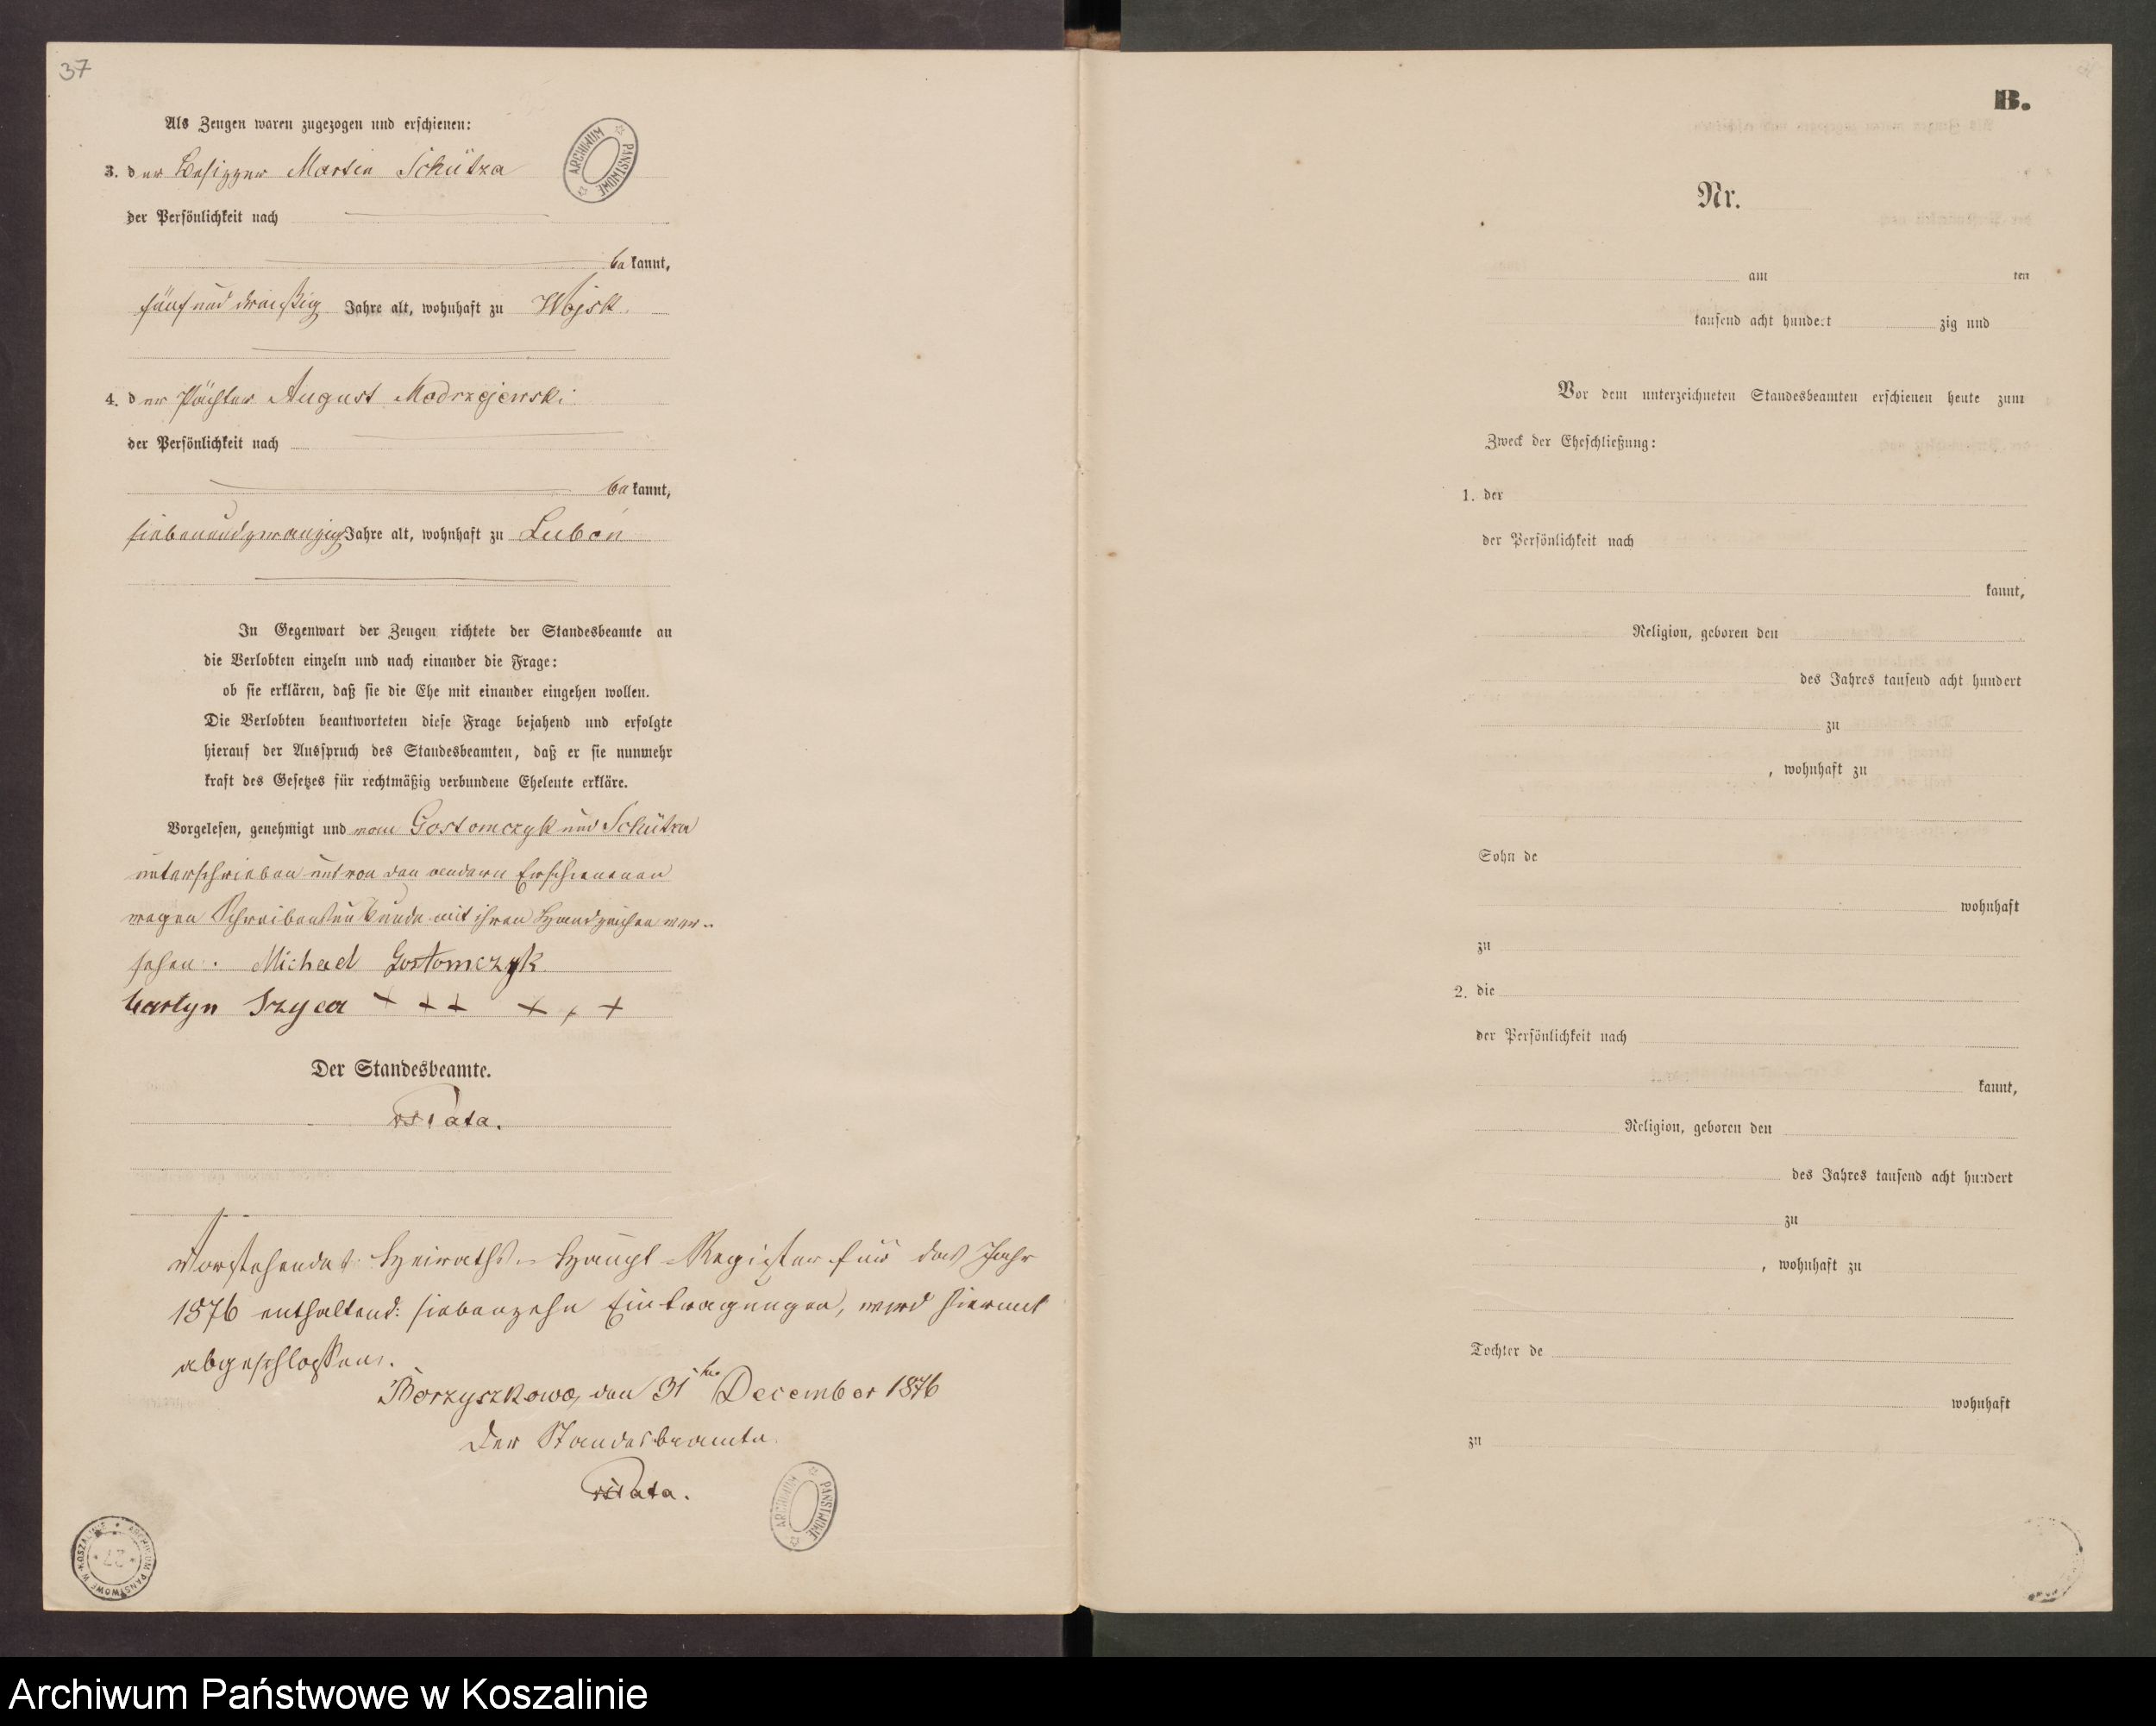 37
Als Zeugen waren zugezogen und erschienen:
3. der Besitzer Martin Schütza
der Persönlichkeit nach
bekannt,
fünf und dreißig Jahre alt, wohnhaft zu Wojsk
4. der Pächter August Modrzejewski
der Persönlichkeit nach
bekannt,
siebenundzwanzig Jahre alt, wohnhaft zu Lubon
In Gegenwart der Zeugen richtete der Standesbeamte an
die Verlobten einzeln und nach einander die Frage:
ob sie erklären, daß sie die Ehe mit einander eingehen wollen.
Die Verlobten beantworteten diese Frage bejahend und erfolgte
hierauf der Ausspruch des Standesbeamten, daß er sie nunmehr
kraft des Gesetzes für rechtmäßig verbundene Eheleute erkläre.
Vorgelesen, genehmigt und von Gostomczyk und Schütza
unterschrieben und von den andern Erschienenen
wegen Schreibensunkunde mit ihren Handzeichen ver-
sehen. Michael Gostomczyk
Martyn Szyca + + + + + +
Der Standesbeamte.
Vorstehendes Heiraths-Haupt-Register für das Jahr
1876 enthaltend: siebenzehn Eintragungen, wird hiermit
abgeschlossen.
Borzyszkowo, den 31ten December 1876
Der Standesbeamte
ARCHIWUM PAŃSTWOWE
ARCHIWUM PAŃSTWOWE
ARCHIWUM PAŃSTWOWE W KOSZALINIE
27
B.
Nr.
am ten
tausend acht hundert zig und
Vor dem unterzeichneten Standesbeamten erschienen heute zum
Zweck der Eheschließung:
1. der
der Persönlichkeit nach
kannt,
Religion, geboren den
des Jahres tausend acht hundert
zu
, wohnhaft zu
Sohn de
wohnhaft
zu
2. die
der Persönlichkeit nach
kannt,
Religion, geboren den
des Jahres tausend acht hundert
zu
, wohnhaft zu
Tochter de
wohnhaft
zu
Archiwum Państwowe w Koszalinie